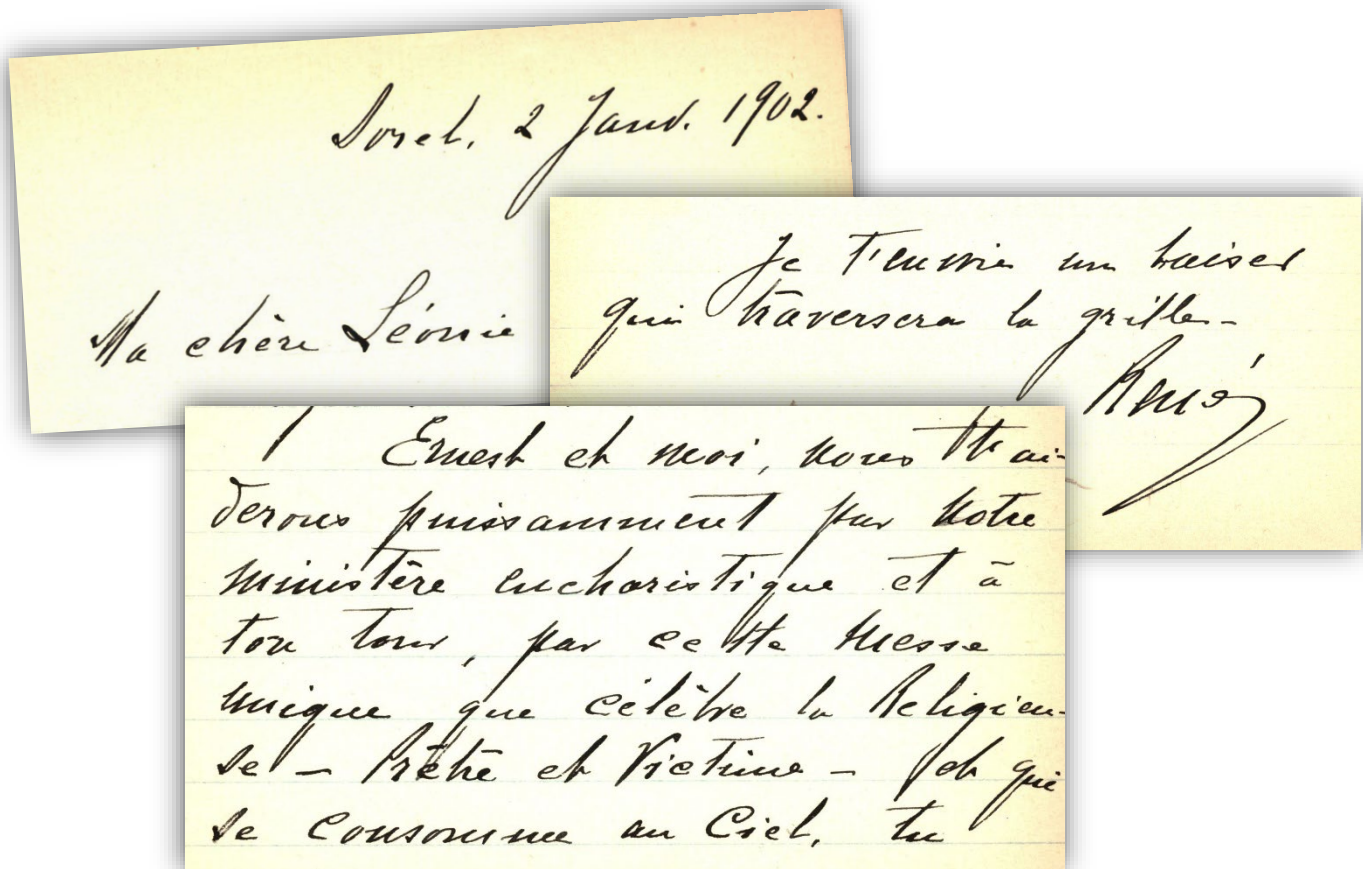 Sorel, 2 Janv. 1902.
Ma chère Léonie
Je t'envoie un baiser
qui traversera la grille-
René
Ernest et moi, nous t'ai-
derons puissamment par notre
ministère eucharistique et à
ton tour, par cette Messe
unique que célèbre la Religieu-
se - Prêtre et Victime - et qui
se consomme au Ciel, tu